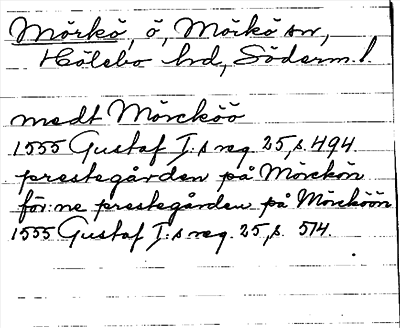 Mörkö, ö, Mörkö sn,
Hölebo hd, Söderm. l.
medt Mörcköö
1555 Gustaf I:s reg. 25, s. 494.
prestegården på Mörckön
för:ne prestegården på Mörcköön
1555 Gustaf I:s reg. 25, s. 514.